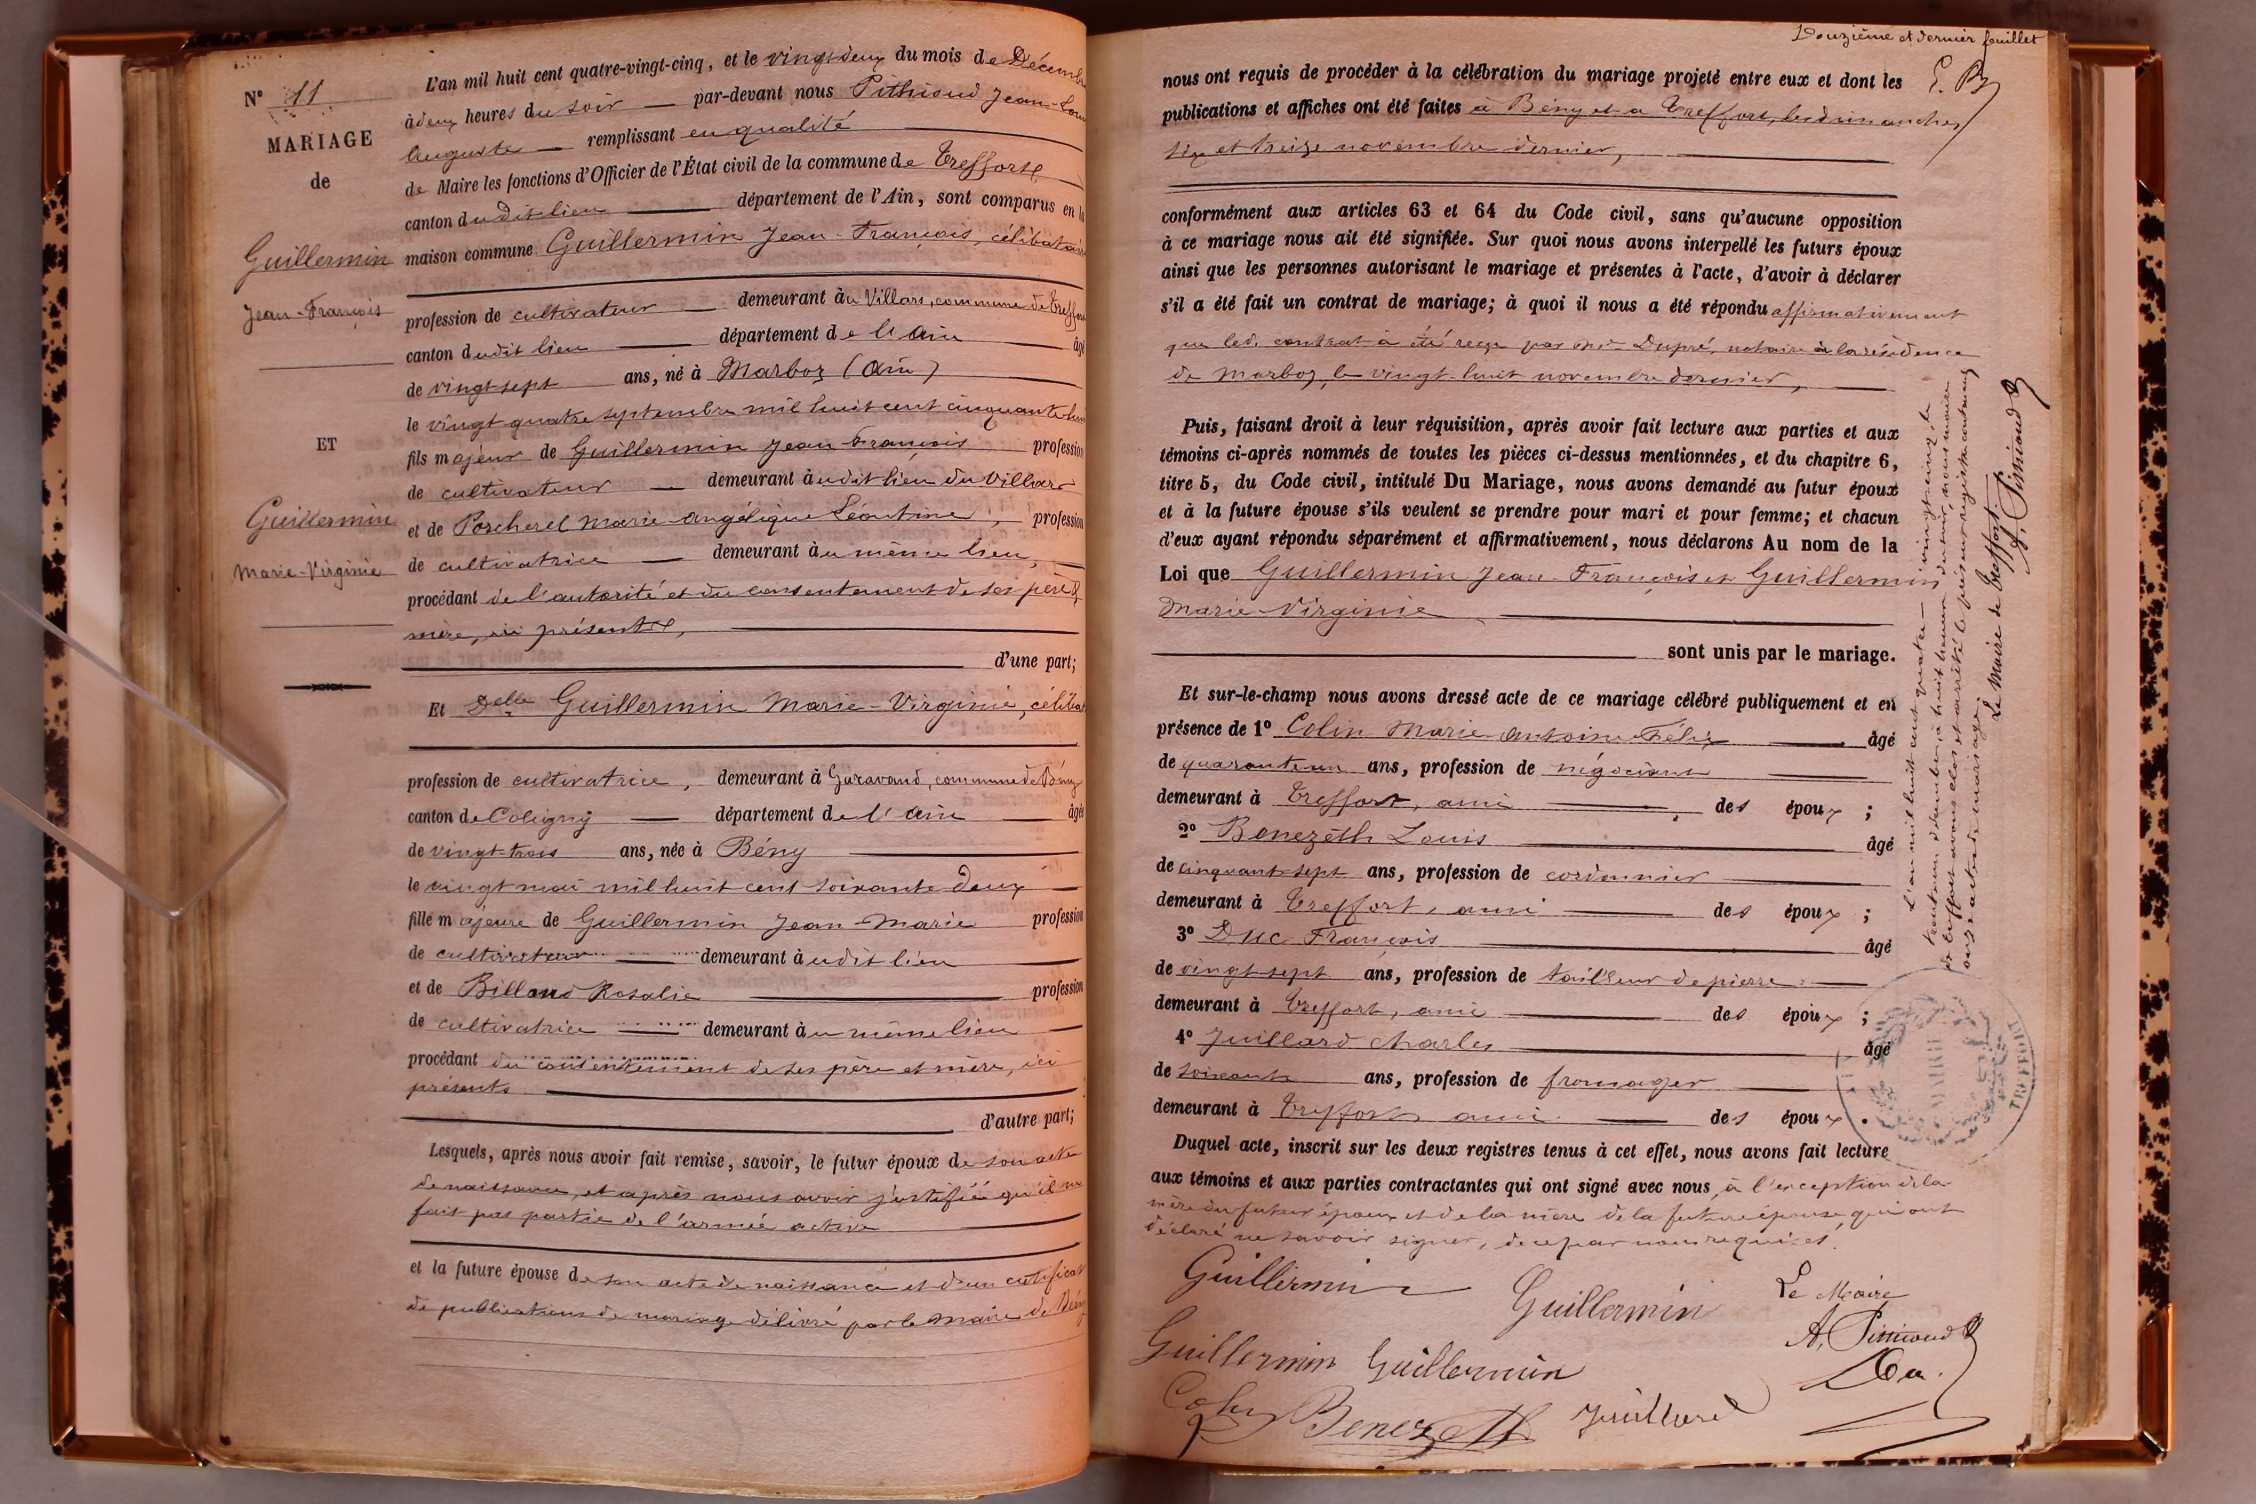 N° 11
MARIAGE
de
Guillermin
Jean-François
ET
Guillermin
Marie-Virginie
L'an mil huit cent quatre-vingt-cinq, et le vingt-deux du mois de Décembre
à deux heures du soir par-devant nous Pithioud Jean-Louis
Auguste remplissant en qualité
de Maire les fonctions d'Officier de l'État civil de la commune de Treffort
canton dudit lieu département de l'Ain, sont comparus en la
maison commune Guillermin Jean-François, célibataire
profession de cultivateur demeurant au Villars, commune de Treffort
canton dudit lieu département de l'Ain âgé
de vingt-sept ans, né à Marboz (Ain)
le vingt quatre septembre mil huit cent cinquante huit
fils majeur de Guillermin Jean-François profession
de cultivateur demeurant audit lieu du Villars
et de Porcherel Marie-Angélique Léontine, profession
de cultivatrice demeurant au même lieu,
procédant de l'autorité et du consentement de ses père &
mère, ici présents,
d'une part;
Et Delle Guillermin Marie-Virginie, célibat
profession de cultivatrice, demeurant à Garavand, commune de Bény
canton de Coligny département de l'Ain âgée
de vingt-trois ans, née à Bény
le vingt mai mil huit cent soixante deux
fille majeure de Guillermin Jean-Marie profession
de cultivateur demeurant audit lieu
et de Billoud Rosalie profession
de cultivatrice demeurant au même lieu
procédant du consentement de ses père et mère, ici
présents
d'autre part;
Lesquels, après nous avoir fait remise, savoir, le futur époux de son acte
de naissance, et après nous avoir justifié qu'il ne
fait pas partie de l'armée active
et la future épouse de son acte de naissance et d'un certificat
de publications de mariage délivré par le Maire de Bény
Douzième et dernier feuillet
nous ont requis de procéder à la célébration du mariage projeté entre eux et dont les
publications et affiches ont été faites à Bény et à Treffort, les dimanches
six et treize novembre dernier,
conformément aux articles 63 et 64 du Code civil, sans qu'aucune opposition
à ce mariage nous ait été signifiée. Sur quoi nous avons interpellé les futurs époux
ainsi que les personnes autorisant le mariage et présentes à l'acte, d'avoir à déclarer
s'il a été fait un contrat de mariage; à quoi il nous a été répondu affirmativement
que led. contrat a été reçu par Me Dupré, notaire à la résidence
de Marboz, le vingt-huit novembre dernier,
Puis, faisant droit à leur réquisition, après avoir fait lecture aux parties et aux
témoins ci-après nommés de toutes les pièces ci-dessus mentionnées, et du chapitre 6,
titre 5, du Code civil, intitulé Du Mariage, nous avons demandé au futur époux
et à la future épouse s'ils veulent se prendre pour mari et pour femme; et chacun
d'eux ayant répondu séparément et affirmativement, nous déclarons Au nom de la
Loi que Guillermin Jean-François et Guillermin
Marie-Virginie
sont unis par le mariage.
Et sur-le-champ nous avons dressé acte de ce mariage célébré publiquement et en
présence de 1° Colin Marie-Antoine-Félix âgé
de quarante-un ans, profession de négociant
demeurant à Treffort, ami des époux;
2° Benezeth Louis âgé
de cinquant-sept ans, profession de cordonnier
demeurant à Treffort, ami des époux;
3° Duc François âgé
de vingt-sept ans, profession de tailleur de pierre
demeurant à Treffort, ami des époux;
4° Juillard Charles âgé
de soixante ans, profession de fromager
demeurant à Treffort ami des époux.
Duquel acte, inscrit sur les deux registres tenus à cet effet, nous avons fait lecture
aux témoins et aux parties contractantes qui ont signé avec nous, à l'exception de la
mère du futur époux et de la mère de la future épouse, qui ont
déclaré ne savoir signer, de ce par nous requises.
Guillermin Guillermin Le Maire
A. Pithioud
Guillermin Guillermin Duc
Colin Benezeth Juillard
L'an mil huit cent quatre-vingt-cinq, le
trente-un décembre, à huit heures du soir, nous maire
de Treffort avons clos et arrêté le présent registre contenant
onze actes de mariage.
Le Maire de Treffort
A. Pithioud
MAIRIE
TREFFORT